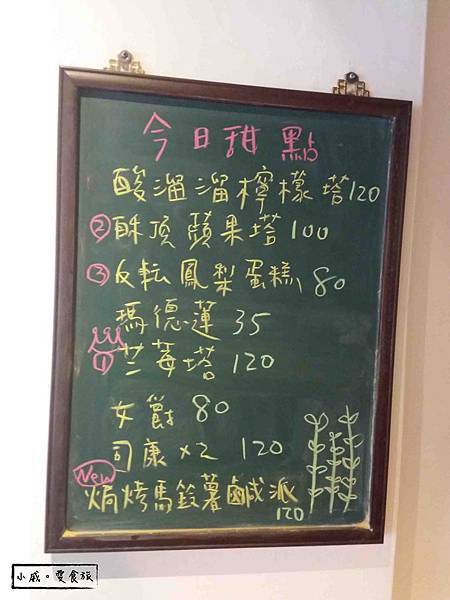 今日甜點
酸溜溜檸檬塔120
② 酥頂蘋果塔 100
③ 反転鳳梨蛋糕 80
瑪德蓮 35
① 芒莓塔 120
女爵 80
司康 x2 120
New
焗烤馬鈴薯鹹派
120
小戚。愛食旅